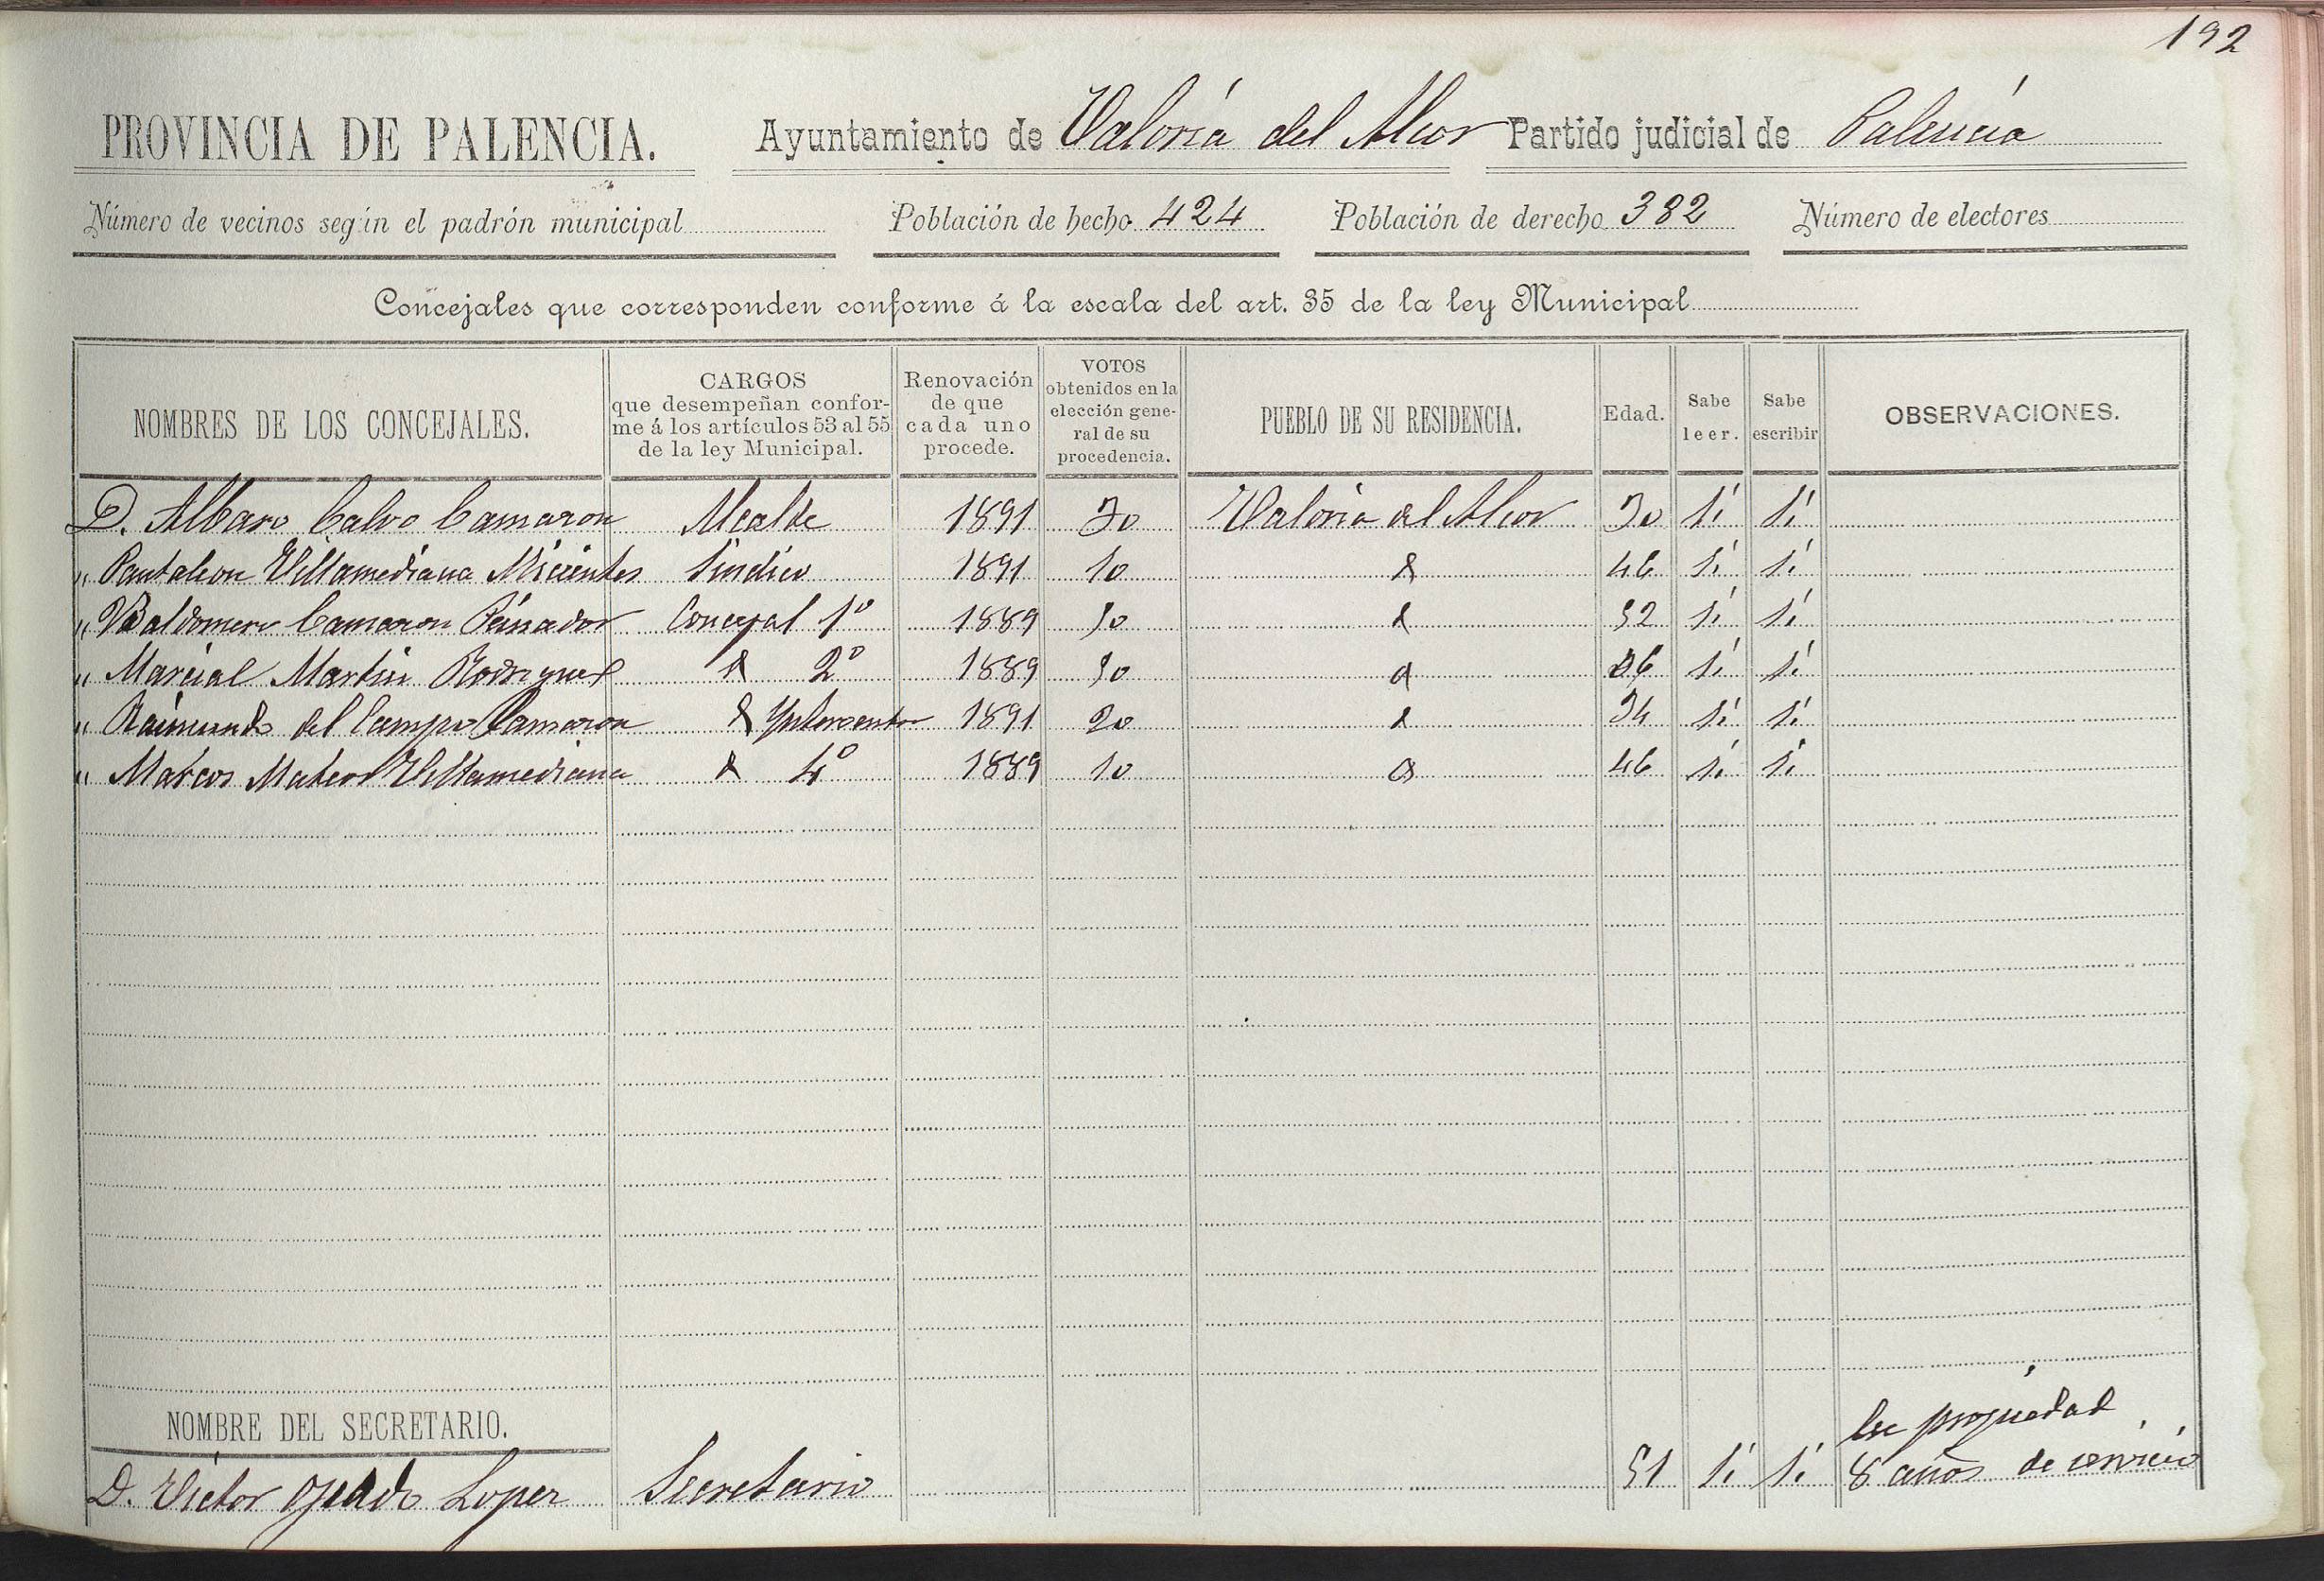 192
PROVINCIA DE PALENCIA. Ayuntamiento de Valoria del Alcor Partido judicial de Palencia
Número de vecinos según el padrón municipal Población de hecho 424 Población de derecho 382 Número de electores
Concejales que corresponden conforme á la escala del art. 35 de la ley Municipal
NOMBRES DE LOS CONCEJALES. CARGOS que desempeñan conforme á los artículos 53 al 55 de la ley Municipal. Renovación de que cada uno procede. VOTOS obtenidos en la elección general de su procedencia. PUEBLO DE SU RESIDENCIA. Edad. Sabe leer. Sabe escribir OBSERVACIONES.
D. Albaro Calvo Camaron Alcalde 1891 30 Valoria del Alcor 30 Sí Sí
" Pantaleon Villamediana Micientes Sindico 1891 10 46 Sí Sí
" Baldomero Camaron Peinador Concejal 1º 1889 52 Sí Sí
" Marcial Martin Rodriguez 2º 1889 Sí Sí
" Raimundo del Campo Camaron Ynterventor 1891 20 34 Sí Sí
" Marcos Mateo Villamediana 4º 1889 10 46 Sí Sí
NOMBRE DEL SECRETARIO.
En propiedad
D. Victor Lopez Secretario 51 Sí Sí 8 años de servicio